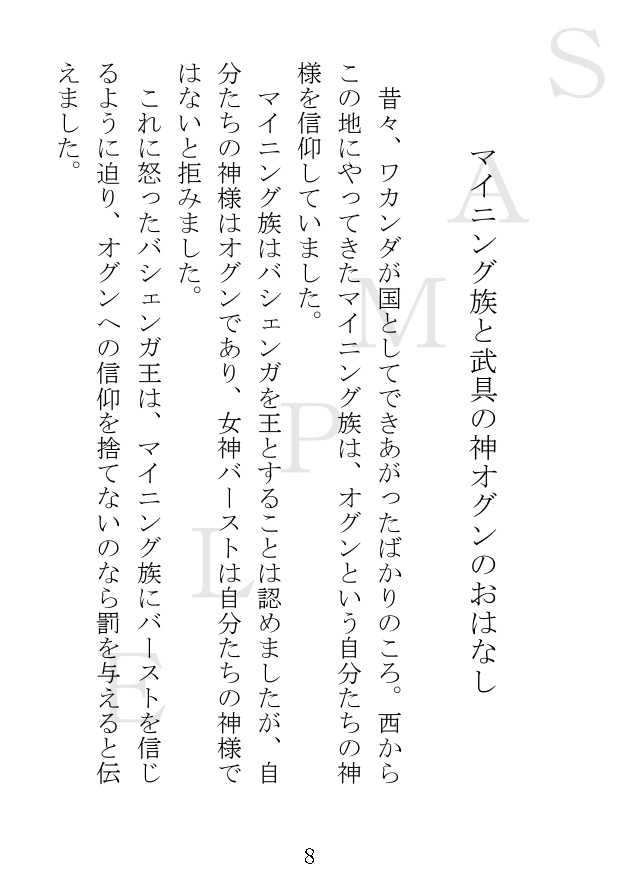 マイニング族と武具の神オグンのおはなし
昔々、ワカンダが国としてできあがったばかりのころ。西から
この地にやってきたマイニング族は、オグンという自分たちの神
様を信仰していました。
マイニング族はバシェンガを王とすることは認めましたが、自
分たちの神様はオグンであり、女神バーストは自分たちの神様で
はないと拒みました。
これに怒ったバシェンガ王は、マイニング族にバーストを信じ
るように迫り、オグンへの信仰を捨てないのなら罰を与えると伝
えました。
8
SAMPLE